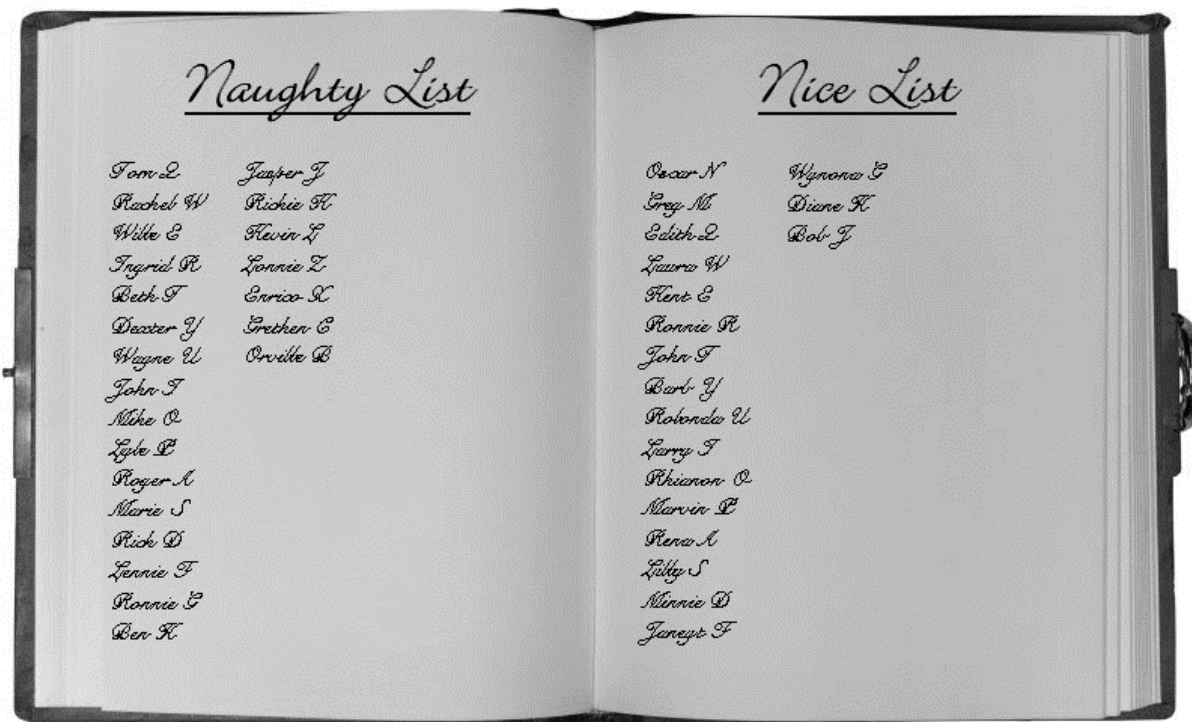 Naughty List
Tom Q
Rachel W
Wille E
Ingrid R
Beth T
Dexter Y
Wayne U
John I
Mike O
Lyle P
Roger A
Marie S
Rick D
Lennie F
Ronnie G
Ben H
Jasper J
Richie K
Kevin L
Lonnie Z
Enrico X
Grethen C
Orville B
Nice List
Oscar N
Greg M
Edith Q
Laura W
Kent E
Ronnie R
John T
Barb Y
Robonda U
Larry I
Rhianon O
Marvin P
Rena A
Lilly S
Minnie D
Janeyt F
Wynona G
Diane H
Bob J